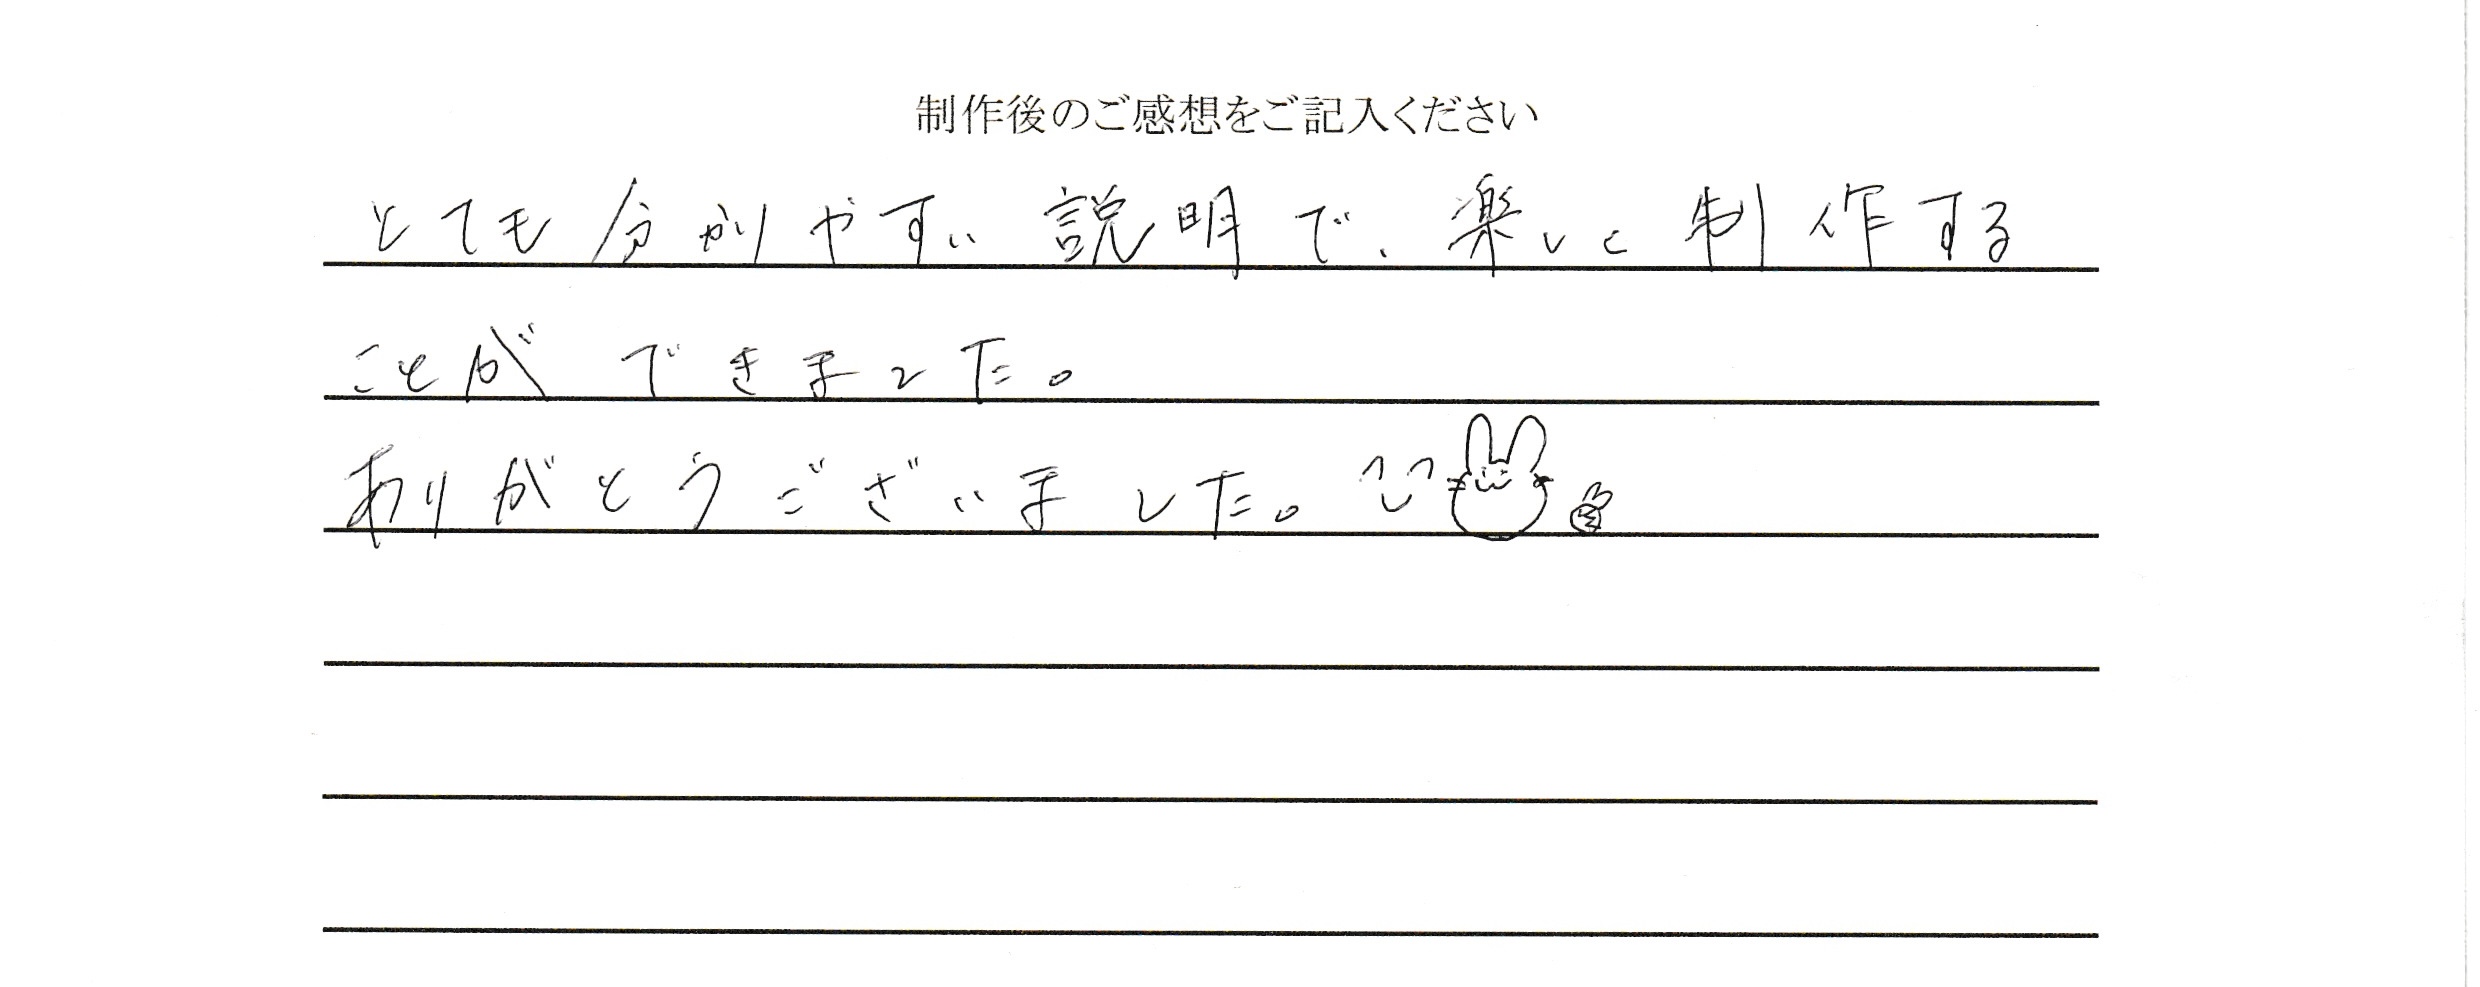 制作後のご感想をご記入ください
とても分かりやすい説明で、楽しく制作する
ことができました。
ありがとうございました。